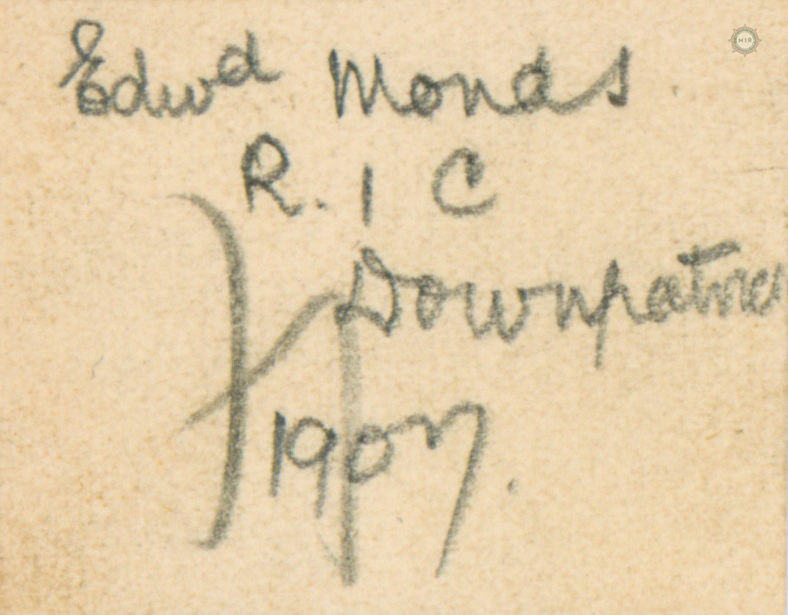 Edwd Monds.
R. I C
Downpatric
1907.